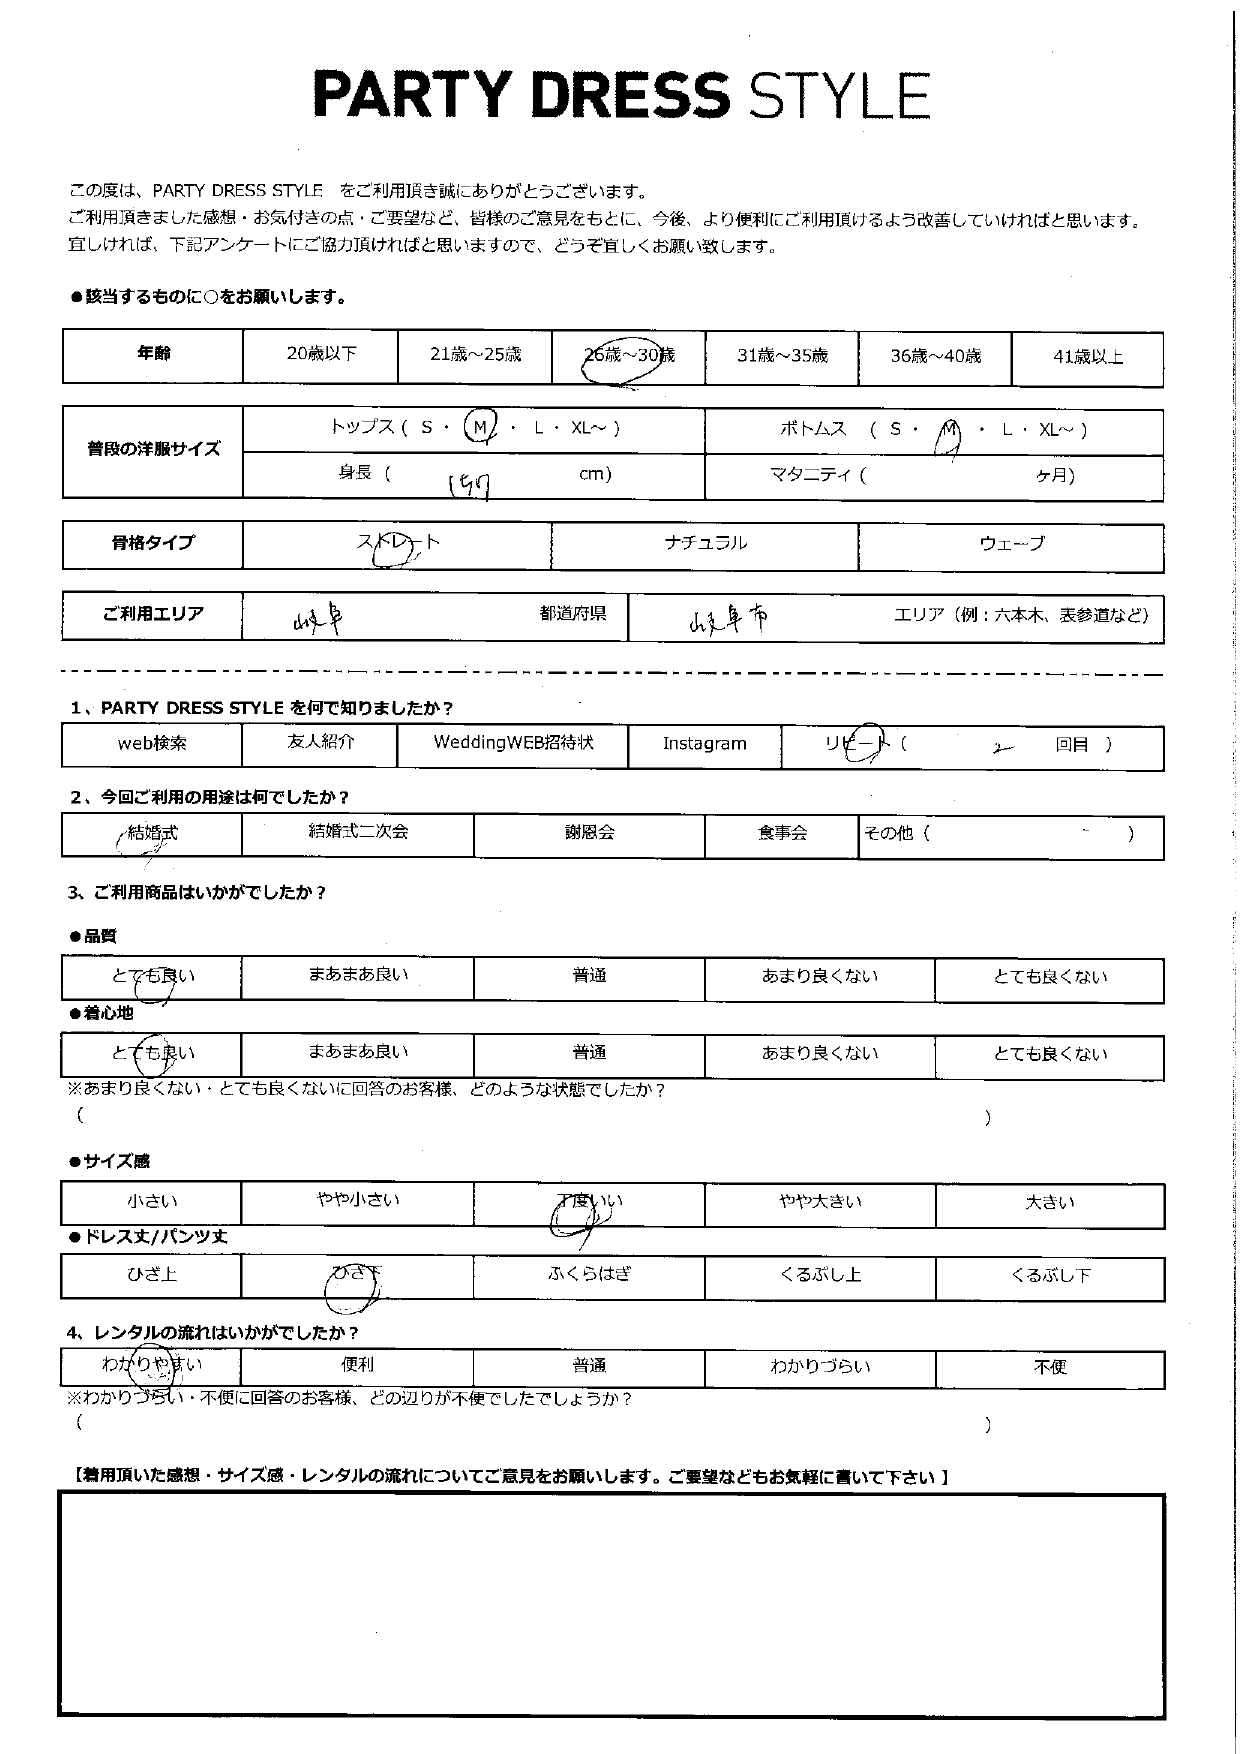 PARTY DRESS STYLE
この度は、PARTY DRESS STYLE をご利用頂き誠にありがとうございます。
ご利用頂きました感想・お気付きの点・ご要望など、皆様のご意見をもとに、今後、より便利にご利用頂けるよう改善していければと思います。
宜しければ、下記アンケートにご協力頂ければと思いますので、どうぞ宜しくお願い致します。
●該当するものに○をお願いします。
年齢 20歳以下 21歳～25歳 26歳～30歳 31歳～35歳 36歳～40歳 41歳以上
普段の洋服サイズ トップス ( S ・ M ・ L ・ XL～ ) ボトムス ( S ・ M ・ L ・ XL～ )
身長 ( 157 cm) マタニティ ( ケ月)
骨格タイプ ストレート ナチュラル ウェーブ
ご利用エリア 岐阜 都道府県 岐阜市 エリア（例：六本木、表参道など）
1、PARTY DRESS STYLE を何で知りましたか？
web検索 友人紹介 WeddingWEB招待状 Instagram リピート ( 2 回目 )
2、今回ご利用の用途は何でしたか？
結婚式 結婚式二次会 謝恩会 食事会 その他 ( )
3、ご利用商品はいかがでしたか？
●品質
とても良い まあまあ良い 普通 あまり良くない とても良くない
●着心地
とても良い まあまあ良い 普通 あまり良くない とても良くない
※あまり良くない・とても良くないに回答のお客様、どのような状態でしたか？
( )
●サイズ感
小さい やや小さい 丁度いい やや大きい 大きい
●ドレス丈/パンツ丈
ひざ上 ひざ下 ふくらはぎ くるぶし上 くるぶし下
4、レンタルの流れはいかがでしたか？
わかりやすい 便利 普通 わかりづらい 不便
※わかりづらい・不便に回答のお客様、どの辺りが不便でしたでしょうか？
( )
【着用頂いた感想・サイズ感・レンタルの流れについてご意見をお願いします。ご要望などもお気軽に書いて下さい 】